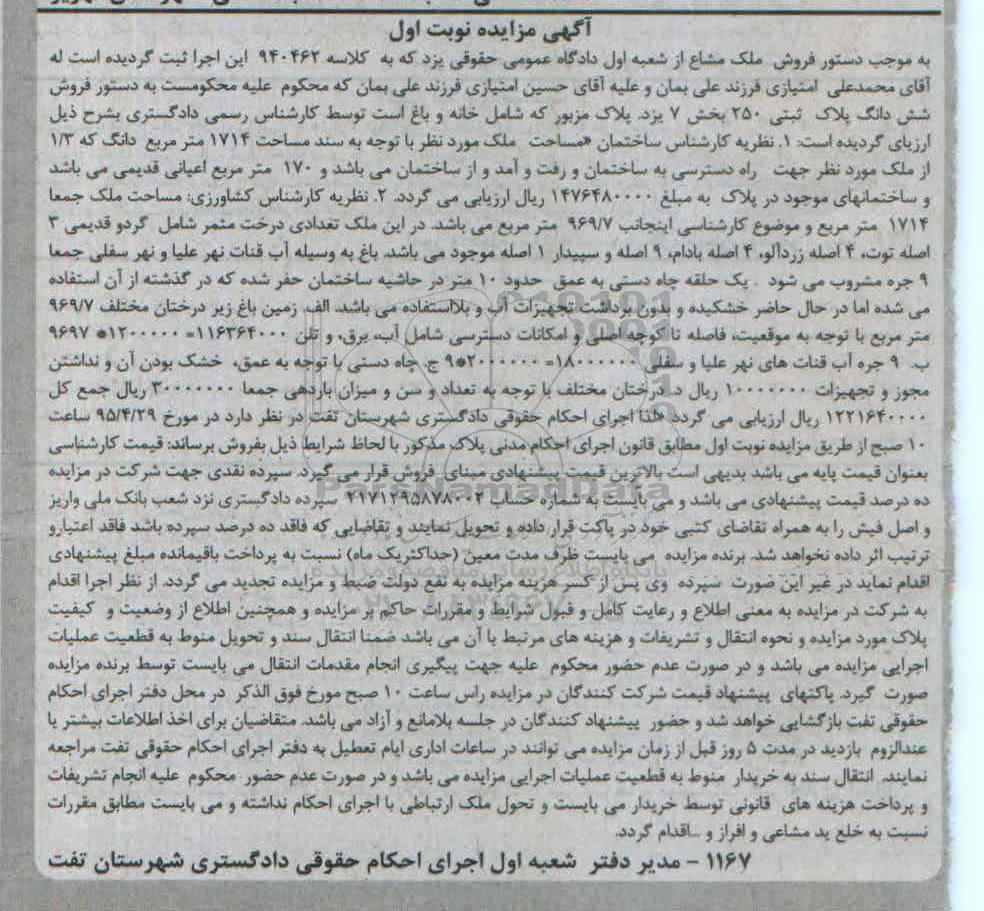 آگهی مزایده نوبت اول
به موجب دستور فروش ملک مشاع از شعبه اول دادگاه عمومی حقوقی یزد که به کلاسه ۹۴۰۴۶۲ این اجرا ثبت گردیده است له
آقای محمدعلی امتیازی فرزند علی بمان و علیه آقای حسین امتیازی فرزند علی بمان که محکوم علیه محکومست به دستور فروش
شش دانگ پلاک ثبتی ۲۵۰ بخش ۷ یزد. پلاک مزبور که شامل خانه و باغ است توسط کارشناس رسمی دادگستری بشرح ذیل
ارزیابی گردیده است: ۱. نظریه کارشناس ساختمان «مساحت ملک مورد نظر با توجه به سند مساحت ۱۷۱۴ متر مربع دانگ که ۱/۳
از ملک مورد نظر جهت راه دسترسی به ساختمان و رفت و آمد و از ساختمان می باشد و ۱۷۰ متر مربع اعیانی قدیمی می باشد
و ساختمانهای موجود در پلاک به مبلغ ۱۴۷۶۴۸۰۰۰۰ ریال ارزیابی می گردد. ۲. نظریه کارشناس کشاورزی: مساحت ملک جمعا
۱۷۱۴ متر مربع و موضوع کارشناسی اینجانب ۹۶۹/۷ متر مربع می باشد. در این ملک تعدادی درخت مثمر شامل گردو قدیمی ۳
اصله توت، ۴ اصله زردآلو، ۴ اصله بادام، ۹ اصله و سپیدار ۱ اصله موجود می باشد. باغ به وسیله آب قنات نهر علیا و نهر سفلی جمعا
۹ جره مشروب می شود . یک حلقه چاه دستی به عمق حدود ۱۰ متر در حاشیه ساختمان حفر شده که در گذشته از آن استفاده
می شده اما در حال حاضر خشکیده و بدون برداشت تجهیزات آب و بلااستفاده می باشد. الف. زمین باغ زیر درختان مختلف ۹۶۹/۷
متر مربع با توجه به موقعیت، فاصله تا کوچه اصلی و امکانات دسترسی شامل آب، برق، و تلن ۱۱۶۳۶۴۰۰۰= ۱۲۰۰۰۰۰* ۹۶۹۷
ب. ۹ جره آب قنات های نهر علیا و سفلی ۱۸۰۰۰۰۰۰= ۲۰۰۰۰۰۰*۹ ج. چاه دستی با توجه به عمق، خشک بودن آن و نداشتن
مجوز و تجهیزات ۱۰۰۰۰۰۰۰ ریال د. درختان مختلف با توجه به تعداد و سن و میزان باردهی جمعا ۳۰۰۰۰۰۰۰ ریال جمع کل
۱۲۲۱۶۴۰۰۰۰ ریال ارزیابی می گردد «لذا اجرای احکام حقوقی دادگستری شهرستان تفت در نظر دارد در مورخ ۹۵/۴/۲۹ ساعت
۱۰ صبح از طریق مزایده نوبت اول مطابق قانون اجرای احکام مدنی پلاک مذکور با لحاظ شرایط ذیل بفروش برساند: قیمت کارشناسی
بعنوان قیمت پایه می باشد بدیهی است بالاترین قیمت پیشنهادی مبنای فروش قرار می گیرد. سپرده نقدی جهت شرکت در مزایده
ده درصد قیمت پیشنهادی می باشد و می بایست به شماره حساب ۲۱۷۱۲۹۵۸۷۸۰۰۲ سپرده دادگستری نزد شعب بانک ملی واریز
و اصل فیش را به همراه تقاضای کتبی خود در پاکت قرار داده و تحویل نمایند و تقاضایی که فاقد ده درصد سپرده باشد فاقد اعتبارو
ترتیب اثر داده نخواهد شد. برنده مزایده می بایست ظرف مدت معین (حداکثریک ماه) نسبت به پرداخت باقیمانده مبلغ پیشنهادی
اقدام نماید در غیر این صورت سپرده وی پس از کسر هزینه مزایده به نفع دولت ضبط و مزایده تجدید می گردد. از نظر اجرا اقدام
به شرکت در مزایده به معنی اطلاع و رعایت کامل و قبول شرایط و مقررات حاکم بر مزایده و همچنین اطلاع از وضعیت و کیفیت
پلاک مورد مزایده و نحوه انتقال و تشریفات و هزینه های مرتبط با آن می باشد ضمنا انتقال سند و تحویل منوط به قطعیت عملیات
اجرایی مزایده می باشد و در صورت عدم حضور محکوم علیه جهت پیگیری انجام مقدمات انتقال می بایست توسط برنده مزایده
صورت گیرد. پاکتهای پیشنهاد قیمت شرکت کنندگان در مزایده راس ساعت ۱۰ صبح مورخ فوق الذکر در محل دفتر اجرای احکام
حقوقی تفت بازگشایی خواهد شد و حضور پیشنهاد کنندگان در جلسه بلامانع و آزاد می باشد. متقاضیان برای اخذ اطلاعات بیشتر یا
عندالزوم بازدید در مدت ۵ روز قبل از زمان مزایده می توانند در ساعات اداری ایام تعطیل به دفتر اجرای احکام حقوقی تفت مراجعه
نمایند. انتقال سند به خریدار منوط به قطعیت عملیات اجرایی مزایده می باشد و در صورت عدم حضور محکوم علیه انجام تشریفات
و پرداخت هزینه های قانونی توسط خریدار می بایست و تحول ملک ارتباطی با اجرای احکام نداشته و می بایست مطابق مقررات
نسبت به خلع ید مشاعی و افراز و ...اقدام گردد.
۱۱۶۷ – مدیر دفتر شعبه اول اجرای احکام حقوقی دادگستری شهرستان تفت